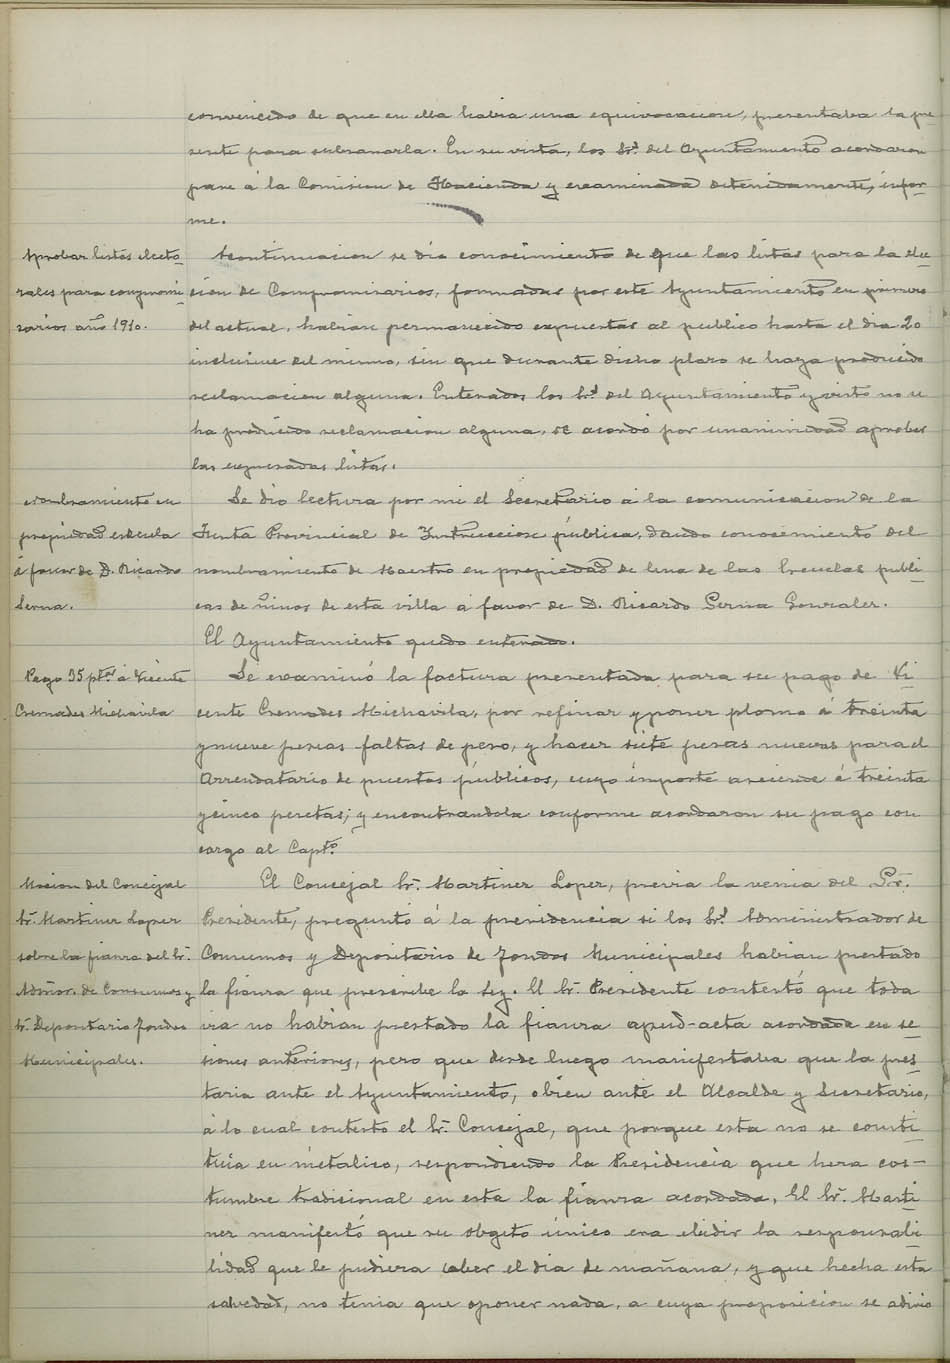 convencido de que en ella habia una equivocacion, presentaba la pre-
sente para subsanarla. En su vista, los Sr.s del Ayuntamiento acordaron
pase á la Comision de Hacienda y examinada detenidamente, infor-
me.
Aprobar listas electo-
rales para compromi-
sarios año 1910.
Acontinuacion se dio conocimiento de que las listas para la elec-
cion de Compromisarios, formadas por este Ayuntamiento en primero
del actual, habian permanecido expuestas al publico hasta el dia 20
inclusive del mismo, sin que durante dicho plazo se haya producido
reclamacion alguna. Enterados los Sr.s del Ayuntamiento y visto no se
ha producido reclamacion alguna, se acordó por unanimidad aprobar
las expresadas listas.
Nombramiento en
propiedad escuela
á favor de D. Ricardo
Serna.
Se dio lectura por mi el Secretario á la comunicacion de la
Junta Provincial de Instruccion pública, dando conocimiento del
nombramiento de Maestro en propiedad de una de las Escuelas publi-
cas de niños de esta villa á favor de D. Ricardo Serna Gonzalez.
El Ayuntamiento quedo enterado.
Pago 35 pts. á Vicente
Cremades Michavila
Se examinó la factura presentada para su pago de Vi-
cente Cremades Michavila, por refinar y poner plomo á treinta
y nueve pesas faltas de peso, y hacer siete pesas nuevas para el
Arrendatario de puestos públicos, cuyo importe asciende á treinta
y cinco pesetas; y encontrandola conforme acordaron su pago con
cargo al Capt.o
Mocion del Concejal
Sr. Martinez Lopez
sobre la fianza del Sr.
Admor. de Consumos y
Sr. Depositario fondos
Municipales.
El Concejal Sr. Martinez Lopez, previa la venia del Sr.
Presidente, preguntó á la presidencia si los Sr.s Administrador de
Consumos y Depositario de fondos Municipales habian prestado
la fianza que prescribe la Ley. El Sr. Presidente contestó que toda
via no habian prestado la fianza apud-acta acordada en se-
siones anteriores, pero que desde luego manifestaba que la pres-
taria ante el Ayuntamiento, obien ante el Alcalde y Secretario,
á lo cual contesto el Sr. Concejal, que porque esta no se consti-
tuia en metalico, respondiendo la Presidencia que hera cos-
tumbre tradicional en esta la fianza acordada, El Sr. Marti-
nez manifestó que su obgeto único era eludir la responsabi-
lidad que le pudiera caber el dia de mañana, y que hecha esta
salvedad, no tenia que oponer nada, a cuya proposicion se adirio